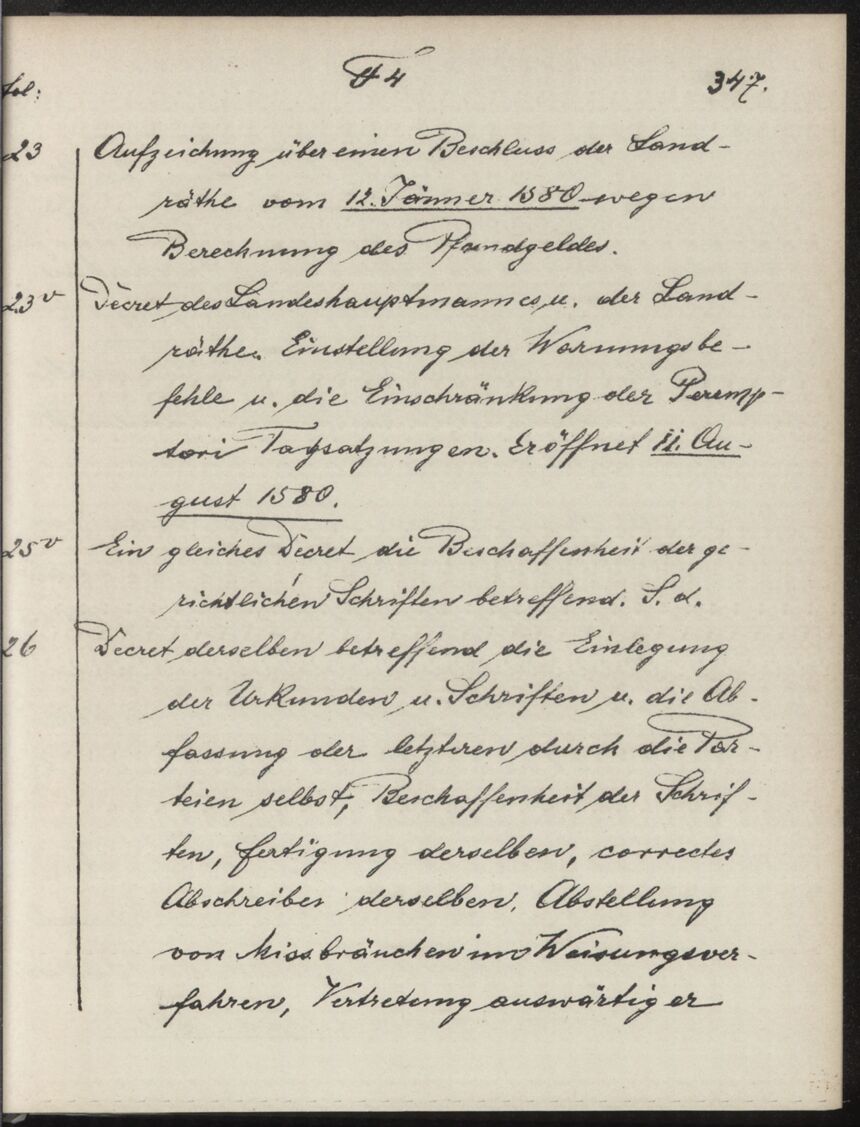 F 4 347.
fol:
23 Aufzeichnung über einen Beschluss der Land-
räthe vom 12. Jänner 1580 wegen
Berechnung des Pfundgeldes.
23v Decret des Landeshauptmannes u. der Land-
räthe. Einstellung der Warnungsbe-
fehle u. die Einschränkung der Peremp-
tori Tagsatzungen. Eröffnet 11. Au-
gust 1580.
25v Ein gleiches Decret die Beschaffenheit der ge-
richtlichen Schriften betreffend. S. d.
26 Decret derselben betreffend die Einlegung
der Urkunden u. Schriften u. die Ab-
fassung der letzteren durch die Par-
teien selbst, Beschaffenheit der Schrif-
ten, fertigung derselben, correctes
Abschreiben derselben, Abstellung
von Missbräuchen im Weisungsver-
fahren, Vertretung auswärtiger